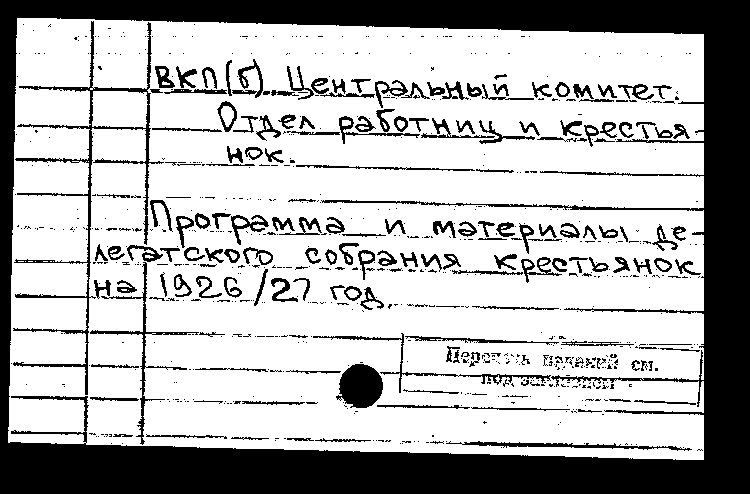 ВКП(б). Центральный комитет.
Отдел работниц и крестья-
нок.
Программа и материалы де-
легатского собрания крестьянок
на 1926/27 год.
Перечень изданий см.
под заглавием